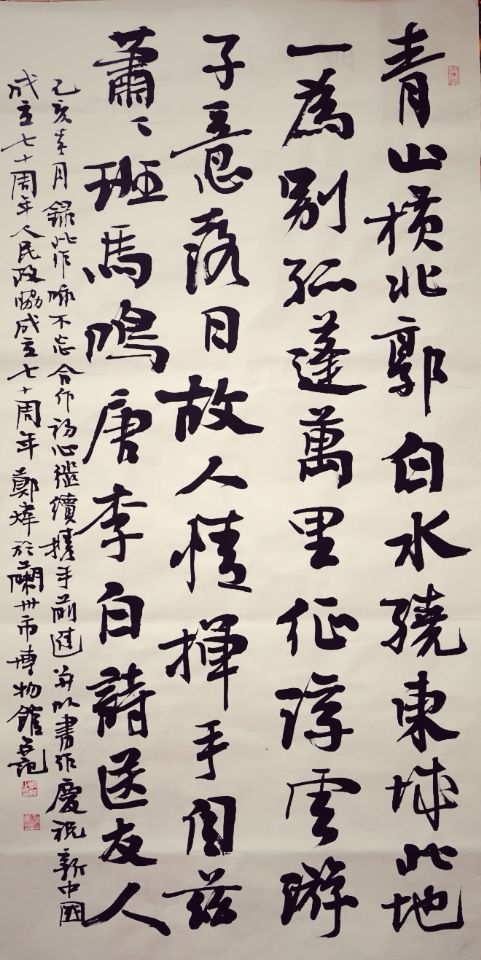 青山横北郭白水繞東城此地
一為別孤蓬萬里征浮雲游
子意落日故人情揮手自茲
蕭〻班馬鳴唐李白詩送友人
己亥春月録此作咏不忘合作初心繼續攜手前進并以書作慶祝新中國
成立七十周年人民政協成立七十周年鄭於蘭州市博物館